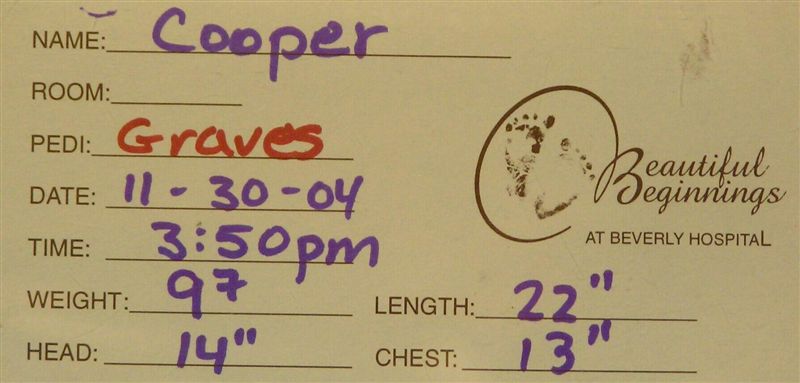 NAME: Cooper
ROOM:
PEDI: Graves
DATE: 11-30-04
TIME: 3:50pm
WEIGHT: 97
LENGTH: 22"
HEAD: 14"
CHEST: 13"
Beautiful
Beginnings
AT BEVERLY HOSPITAL